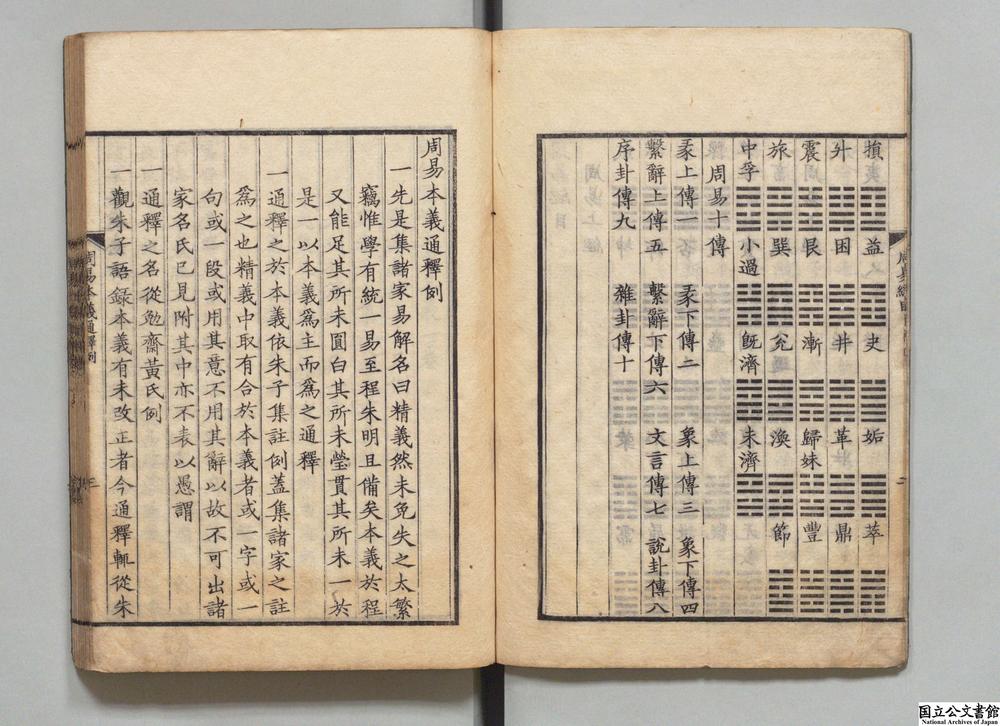 損 益 夬 姤 萃
升 困 井 革 鼎
震 艮 漸 歸妹 豐
旅 巽 兊 渙 節
中孚 小過 旣濟 未濟
周易十傳
彖上傳一 彖下傳二 象上傳三 象下傳四
繫辭上傳五 繫辭下傳六 文言傳七 說卦傳八
序卦傳九 雜卦傳十
周易本義通釋例
一先是集諸家易解名曰精義然未免失之太繁
竊惟學有統一易至程朱明且備矣本義於程
又能足其所未圓白其所未瑩貫其所未一於
是一以本義爲主而爲之通釋
一通釋之於本義依朱子集註例蓋集諸家之註
爲之也精義中取有合於本義者或一字或一
句或一段或用其意不用其辭以故不可出諸
家名氏已見附其中亦不表以愚謂
一通釋之名從勉齋黃氏例
一觀朱子語錄本義有未改正者今通釋輒從朱
周易本義通釋例
国立公文書館
National Archives of Japan